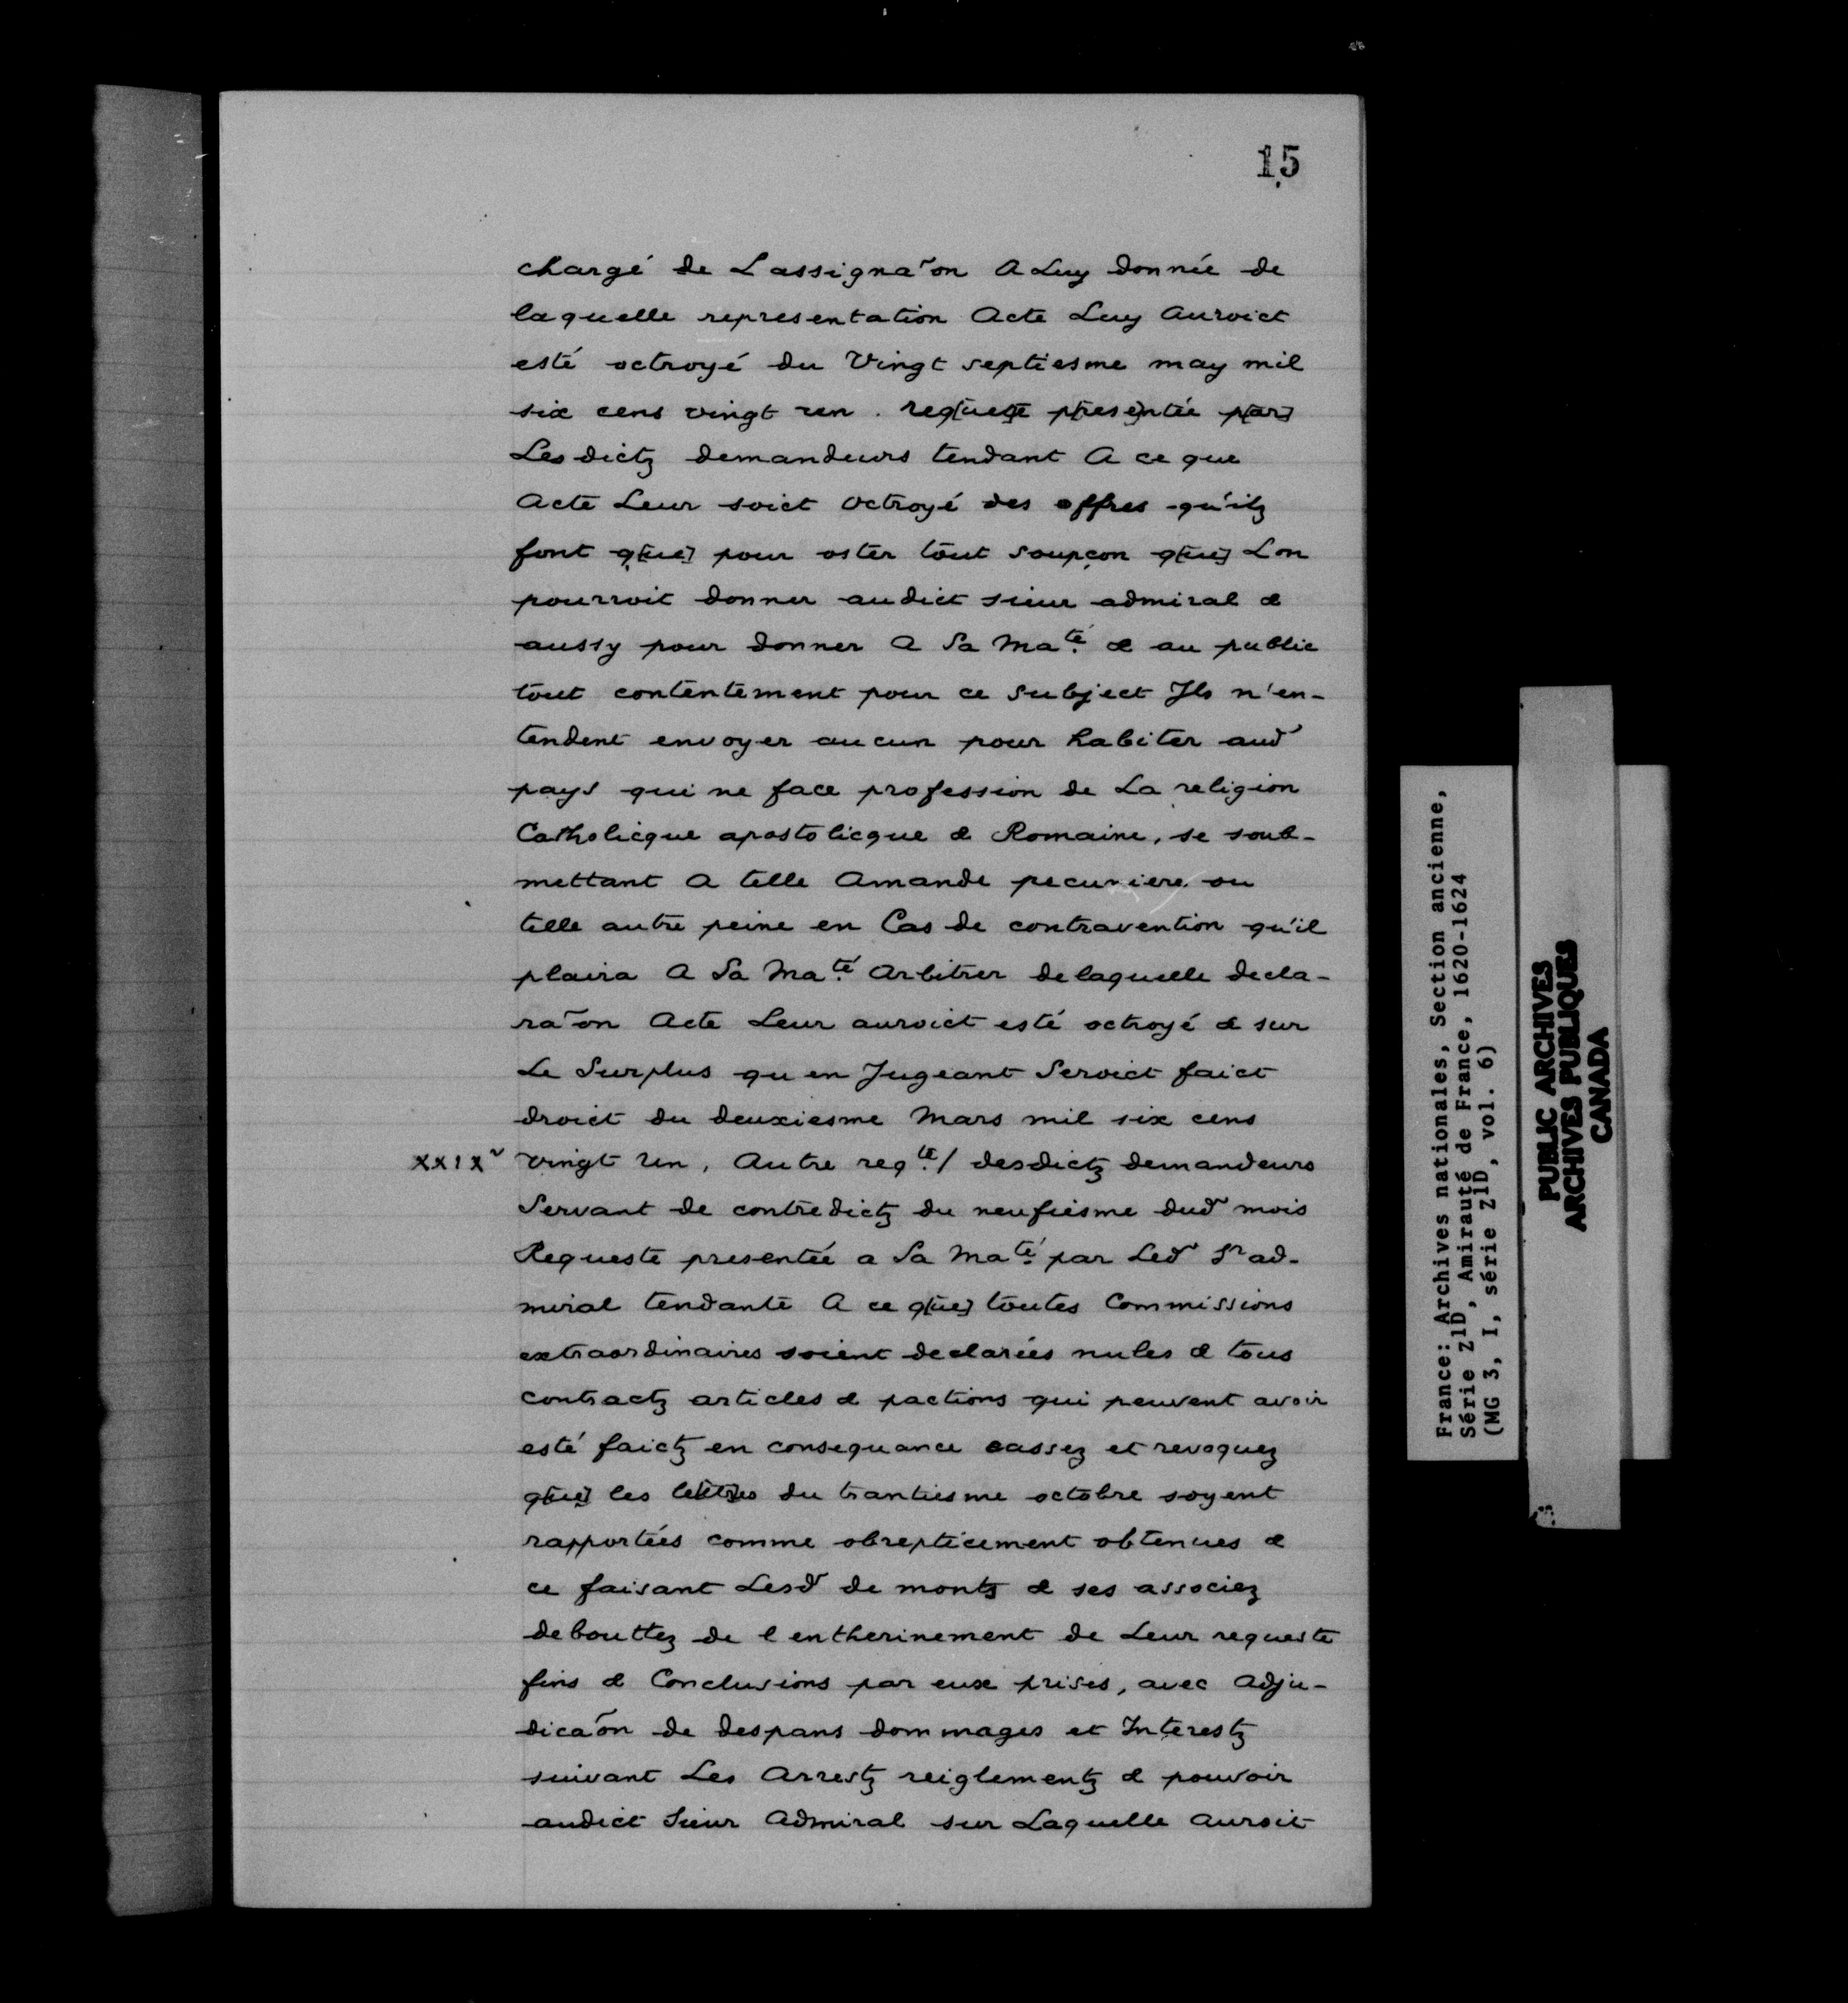 15
chargé de Lassigna~on A Luy donnée de
laquelle representation Acte Luy Auroict
esté octroyé du Vingt septiesme may mil
six cens vingt un. req[ues]te p[rese]ntée p[ar]
Les dictz demandeurs tendant A ce que
Acte Leur soict octroyé des offres qu'ilz
font q[ue] pour oster tout soupçon q[ue] Lon
pourroit donner audict sieur admiral &
aussy pour donner A Sa Ma.té & au public
tout contentement pour ce subject Ils n'en-
tendent envoyer aucun pour habiter aud~
pays qui ne face profession de La religion
Catholicque apostolicque & Romaine, se soub-
mettant A telle Amande pecuniere ou
telle autre peine en Cas de contravention qu'il
plaira A Sa Ma.té Arbitrer de laquelle decla-
ra~on Acte Leur auroict esté octroyé & sur
Le Surplus qu en Jugeant Seroict faict
droict du deuxiesme Mars mil six cens
XXIX~ vingt Un, Autre reqte./ desdictz demandeurs
Servant de contredictz du neufiesme dud~ mois
Requeste presentée a Sa Ma.té par Led~ Sr ad-
miral tendante A ce q[ue] toutes Commissions
extraordinaires soient declarées nules & tous
contractz articles & pactions qui peuvent avoir
esté faictz en consequance cassez et revoquez
q[ue] les le[tt]res du trantiesme octobre soyent
rapportées comme obrepticement obtenues &
ce faisant Lesd~ de monts & ses associez
debouttez de l entherinement de Leur requeste
fins & Conclusions par eux prises, avec Adju-
dica~on de despans dommages et Interestz
suivant Les Arrestz reiglementz & pouvoir
audict Sieur Admiral sur Laquelle Auroit
France: Archives nationales, Section ancienne,
Série Z1D, Amirauté de France, 1620-1624
(MG 3, I, série Z1D, vol. 6)
PUBLIC ARCHIVES
ARCHIVES PUBLIQUES
CANADA